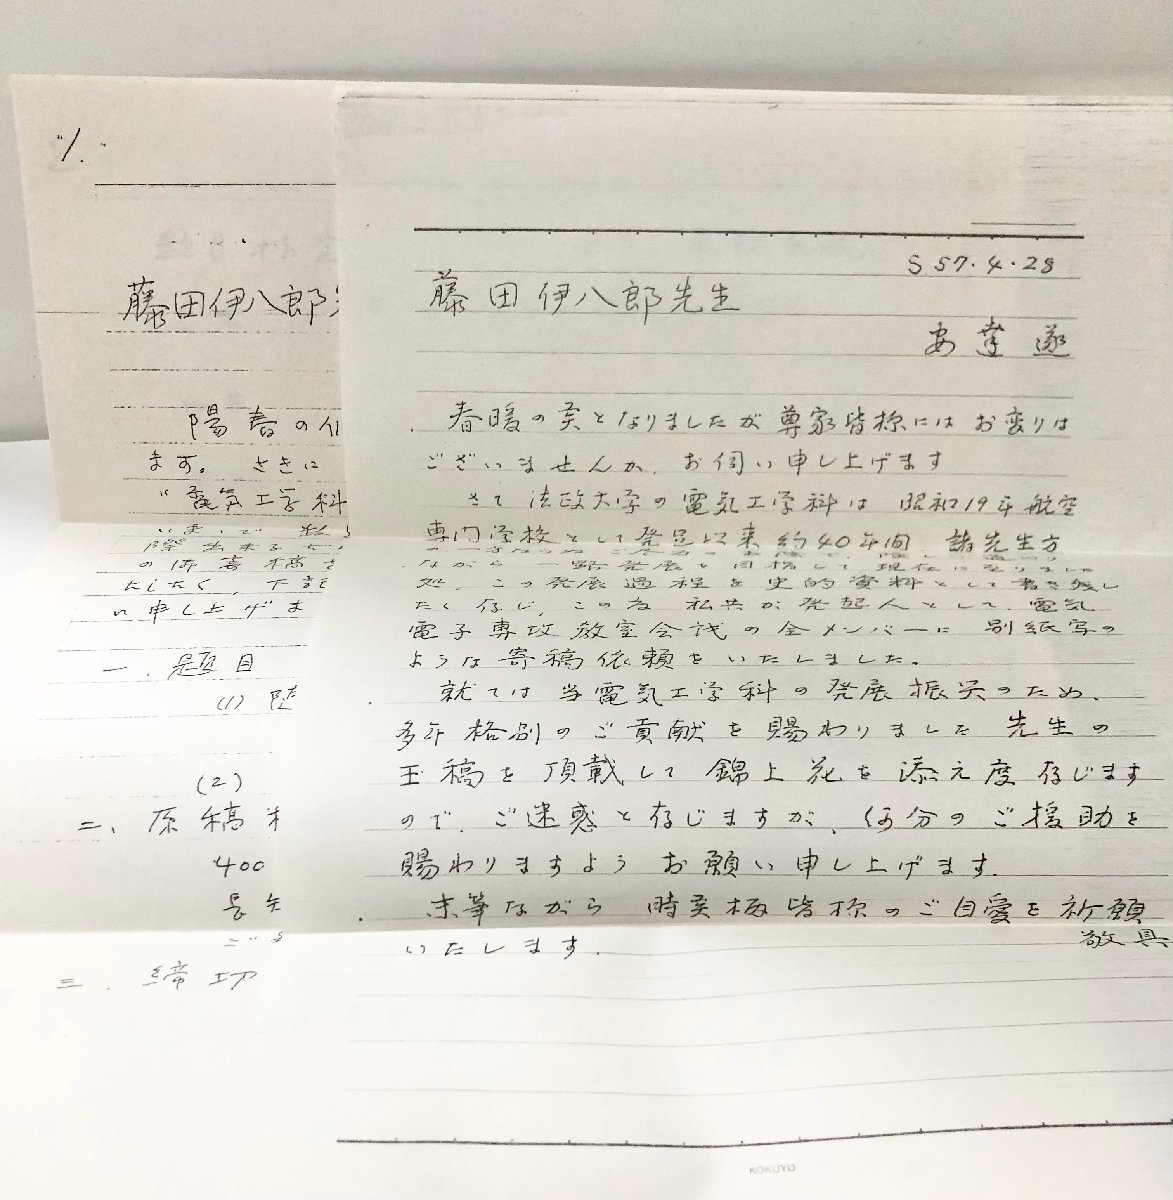 "1."
藤田伊八郎
陽春の
ます。 さきに
"電気工学科
いまで 私
際出来る
の際寄稿
たしたく、下記
い申し上げま
一. 題目
(1) 陸
(2)
二、原稿
400
長短
ご
三. 締切
S 57.4.28
藤田伊八郎先生
安達 遂
春暖の美となりましたが尊家皆様にはお変りは
ございませんか、お伺い申し上げます
さて法政大学の電気工学科は 昭和19年航空
専門学校として発足以来約40年間 諸先生方
ながら 一路発展を目指して現在になりました
処、この発展過程を史的資料として書き残し
たく存じ、この為 私共が発起人として、電気
電子専攻教室会議の全メンバーに 別紙写の
ような寄稿依頼をいたしました。
就ては当電気工学科の発展振興のため、
多年格別のご貢献を賜わりました先生の
玉稿を頂載して錦上花を添え度存じます
ので、ご迷惑と存じますが、何分のご援助を
賜わりますようお願い申し上げます.
末筆ながら 時候柄皆様のご自愛を祈願
いたします.
敬具
KOKUYO